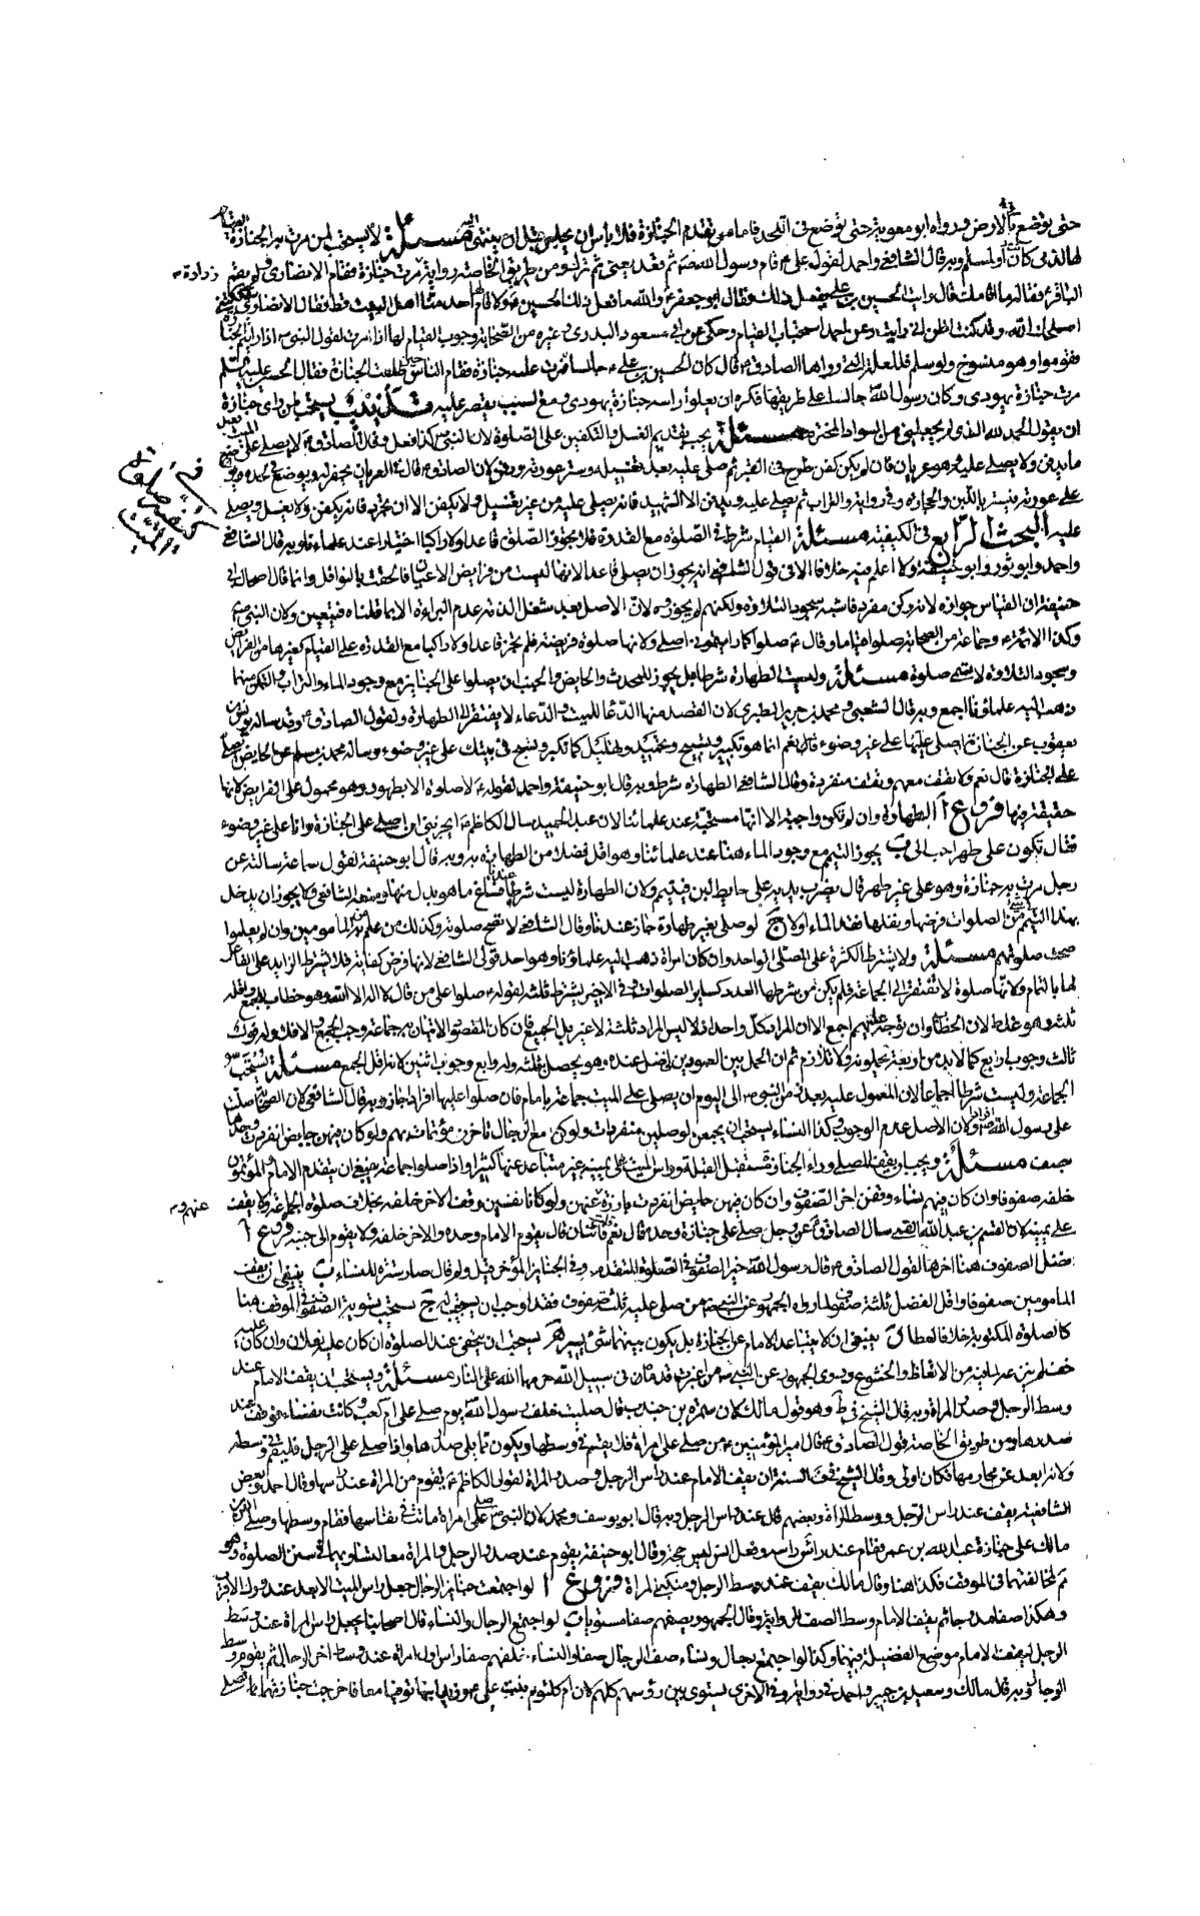 حتى يوضع بالارض ورواه ابو معوية حتى يوضع في اللحد فاما من تقدم الجنازة فلا باس ان يجلس قبل ان ينتهى اليه مسئلة لا يستحب لمن مرت به الجنازة القيام
لها لذمى كان او لمسلم وبه قال الشافعي واحمد لقول علي ع قام رسول الله ص ثم قعد يعنى ثم ترك ومن طريق الخاصة رواية مرت جنازة فقام الانصارى ولم يقم
زرارة
الباقر ع فقال له ما اقامك قال رايت الحسين بن علي يفعل ذلك فقال ابو جعفر ع والله ما فعل ذلك الحسين ع ولا قام لها احد منا اهل البيت قط فقال الانصارى شككتنى
اصلحك الله وقد كنت اظن انى رايت وعن احمد استحباب القيام وحكى عن ابى مسعود البدرى وغيره من الصحابة وجوب القيام لها اذا مرت لقول النبى ص اذا رايتم الجنازة
فقوموا وهو منسوخ ولو سلم فللعلة التي رواها الصادق ع قال كان الحسين بن علي ع جالسا فمرت عليه جنازة فقام الناس حين طلعت الجنازة فقال الحسين عليه السلم
مرت جنازة يهودى وكان رسول الله ص جالسا على طريقها فكره ان يعلو راسه جنازة يهودى ومع السبب يقصر عليه تذنيب يستحب لمن راى جنازة
ان يقول الحمد لله الذي لم يجعلنى من السواد المخترم مسئلة يجب تقديم الغسل والتكفين على الصلوة لان النبى ص كذا فعل وقال الصادق ع لا يصلى على الميت بعد
ما يدفن ولا يصلى عليه وهو عريان فان لم يكن كفن طرح في القبر ثم صلى عليه بعد تغسيله وستر عورته ودفن لان الصادق ع قال في العريان يحفر له ويوضع في لحده ويوضع
على عورته فيستر باللبن والحجارة وفي رواية والتراب ثم يصلى عليه ويدفن الا الشهيد فانه يصلى عليه من غير تغسيل ولا يكفن الا ان يجرد فانه يكفن ولا يغسل ويصلى
عليه البحث الرابع في الكيفية مسئلة القيام شرط في الصلوة مع القدرة فلا يجوز الصلوة قاعدا ولا راكبا اختيارا عند علمائنا وبه قال الشافعي
واحمد وابو ثور وابو حنيفة ولا اعلم فيه خلافا الا في قول للشافعي انه يجوز ان يصلى قاعدا لانها ليست من فرايض الاعيان فالحقت بالنوافل وانما قال اصحاب ابى
حنيفة ان القياس جوازه لانه ركن مفرد فاشبه سجود التلاوة ولكنهم لم يجوزوه لان الاصل بعد شغل الذمة عدم البراءة الا بما قلناه فيتعين وكان النبى ص
وكذا الائمة ع وجماعة من الصحابة صلوا قياما وقال ع صلوا كما رايتمونى اصلى ولانها صلوة فريضة فلم تجز قاعدا ولا راكبا مع القدرة على القيام كغيرها من الفرايض
وسجود التلاوة لا يسمى صلوة مسئلة وليست الطهارة شرطا بل يجوز للمحدث والحايض والجنب ان يصلوا على الجنايز مع وجود الماء والتراب والتمكن منها
وذهب اليه علماؤنا اجمع وبه قال الشعبى ومحمد بن جرير الطبرى لان القصد منها الدعا للميت والدعاء لا يفتقر الى الطهارة ولقول الصادق ع وقد ساله يونس
يعقوب عن الجنازة ايصلى عليها على غير وضوء قال نعم انما هو تكبير وتسبيح وتحميد وتهليل كما تكبر وتسبح في بيتك على غير وضوء وساله محمد بن مسلم عن الحايض تصلى
على الجنازة قال نعم ولا تقف معهم وتقف منفردة وقال الشافعي الطهارة شرط وبه قال ابو حنيفة واحمد لقوله ع لا صلوة الا بطهور وهو محمول على الفرايض لانها
حقيقة فيها فروع ا الطهارة وان لم تكن واجبة الا انها مستحبة عند علمائنا لان عبد الحميد سال الكاظم ع ايجزينى ان اصلى على الجنازة وانا على غير وضوء
فقال تكون على طهر احب الى ب يجوز التيمم مع وجود الماء هنا عند علمائنا وهو اقل فضلا من الطهارة به وبه قال ابو حنيفة لقول سماعة سالته عن
رجل مرت به جنازة وهو على غير طهر قال يضرب بديه على حايط لبن فيتيمم ولان الطهارة ليست شرطا عندنا فساغ ما هو بدل منها ومنعه الشافعي ولا يجوز ان يدخل
بهذا التيمم في شئ من الصلوات فرضها ونفلها فقد الماء اولا ج لو صلى بغير طهارة جاز عندنا وقال الشافعي لا تصح صلوته وكذلك من علم من المامومين وان لم يعلموا
صحت صلوتهم مسئلة ولا يشترط الكثرة على المصلى الواحد وان كان امراة ذهب اليه علماؤنا وهو احد قولى الشافعي لانها فرض كفاية فلا يشترط الزايد على الفاعل
لها بالتمام ولانها صلوة لا تفتقر الى الجماعة فلم يكن من شرطها العدد كساير الصلوات وفي الاخر يشترط ثلثة لقوله ع صلوا على من قال لا اله الا الله وهو خطاب للجمع واقله
ثلثة وهو غلط لان الخطاب وان توجه عليهم اجمع الا ان المراد كل واحد اذ ليس المراد ثلثة لا غير بل الجميع فان كان المقصود الاتيان به جماعة وجب الجميع والا فلا ولهم قول
ثالث وجوب اربع كما لا بد من اربعة يحملونه ولا تلازم ثم ان الحمل بين العمودين افضل عنده وهو يحصل بثلثة ولهم رابع وجوب اثنين لانه اقل الجمع مسئلة تستحب
الجماعة وليست شرطا اجماعا لان المعمول عليه بعد زمن النبى ص الى اليوم ان يصلى على الميت جماعة بامام فان صلوا عليها افرادا جاز وبه قال الشافعي لان الصحابة صلت
على رسول الله ص افرادا ولان الاصل عدم الوجوب وكذا النساء يستحب ان يجمعن لو صلين منفردات ولو كن مع الرجال تاخرن مؤتمات بهم ولو كان فيهن حايض انفردت وحدها
بصف مسئلة ويجب ان يقف المصلى وراء الجنازة مستقبل القبلة وراس الميت على يمينه غير متباعد عنها كثيرا واذا صلوا جماعة ينبغى ان يتقدم الامام والمؤتمون
خلفه صفوفا وان كان فيهم نساء وقفن اخر الصفوف وان كان فيهن حايض انفردت بارزة عنهن ولو كانا نفسين وقف الاخر خلفه بخلاف صلوة الجماعة ولا يقف
عنهم
على يمينه لان القسم بن عبد الله القمى سال الصادق ع عن رجل صلى على جنازة وحده قال نعم قلت فاثنان قال يقوم الامام وحده والاخر خلفه ولا يقوم الى جنبه فروع ا
افضل الصفوف هنا اخرها لقول الصادق ع قال رسول الله ص خير الصفوف في الصلوة المتقدم وفي الجنايز المؤخر قيل ولم قال صار سترة للنساء ب ينبغى ان يقف
المامومين صفوفا واقل الفضل ثلثة صفوف لما رواه الجمهور عن النبي ص من صلى عليه ثلث صفوف فقد اوجب ان يستحب له ج يستحب تسوية الصفوف في الموقف هنا
كالصلوة المكتوبة خلافا لعطا د ينبغى ان لا يتباعد الامام عن الجنازة بل يكون بينهما شئ يسير ه يستحب ان يتحفى عند الصلوة ان كان عليه نعلان وان كان
وسط الرجل وصدر المراة وبه قال الشيخ في ط وهو قول مالك لان سمرة بن جندب قال صليت خلف رسول الله ص يوم صلى على ام كعب وكانت نفساء فوقف عند
صدرها ومن طريق الخاصة قول الصادق ع قال امير المؤمنين ع من صلى على امراة فلا يقم في وسطها ويكون مما يلى صدرها واذا صلى على الرجل فليقم في وسطه
ولانه ابعد عن محارمها فكان اولى وقال الشيخ في ف السنة ان يقف الامام عند راس الرجل وصدر المراة لقول الكاظم ع يقوم من المراة عند راسها وقال احمد وبعض
الشافعية يقف عند راس الرجل ووسط المراة وبعضهم قال عند راس الرجل وبه قال ابو يوسف ومحمد لان النبى ص صلى على امراة ماتت في نفاسها فقام وسطها وصلى انس بن
مالك على جنازة عبد الله بن عمر فقام عند راسه وفعل انس ليس حجة وقال ابو حنيفة يقوم عند صدر الرجل والمراة معا لتساويهما في سنن الصلوة وهو
ثم لمخالفتهما في الموقف فكذا هنا وقال مالك يقف عند وسط الرجل ومنكبى المراة فروع ا لو اجتمعت جنايز الرجال جعل راس الميت الابعد عند ورك الاقرب
وهكذا صفا مدرجا ثم يقف الامام وسط الصف للرواية وقال الجمهور يصفهم صفا مستويا ب لو اجتمع الرجال والنساء قال اصحابنا يجعل راس المراة عند وسط
الرجل ليقف الامام موضع الفضيلة فيهما وكذا لو اجتمع رجال ونساء صف الرجال صفا والنساء خلفهم صفا راس اول امراة عند وسط اخر الرجال ثم يقوم وسط
الرجال وبه قال مالك وسعيد بن جبير واحمد في رواية وفي الاخرى يستوى بين رؤسهم كلهم لان ام كلثوم بنت على ع وزيدا ابنها توفيا معا فاخرجت جنازتهما فصلى